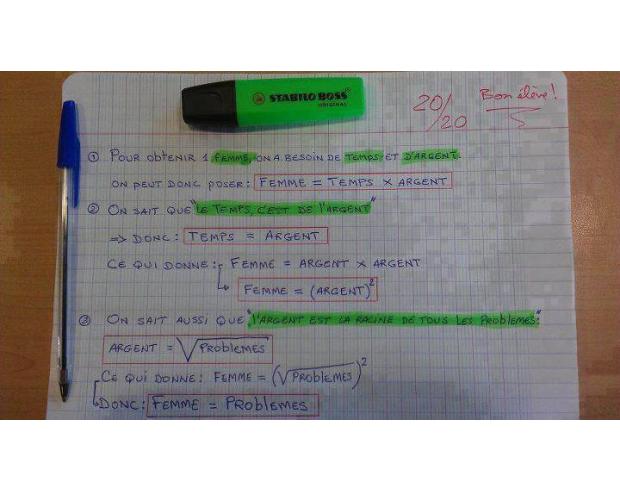 STABILO BOSS
ORIGINAL
20/20
Bon élève!
① POUR obtENIR 1 FEMME, ON A BESOIN DE TEMPS ET D'ARGENT.
ON PEUT DONC POSER: FEMME = TEMPS X ARGENT
② ON SAIT QUE "LE TEMPS, C'EST DE L'ARGENT"
=> DONC: TEMPS = ARGENT
CE QUI DONNE: FEMME = ARGENT X ARGENT
FEMME = (ARGENT)²
③ ON SAIT AUSSI QUE "l'ARGENT EST LA RACINE DE TOUS LES PRoblEMES":
ARGENT = √PRoblEMES
CE QUI DONNE: FEMME = (√PRoblEMES)²
DONC: FEMME = PRoblEMES